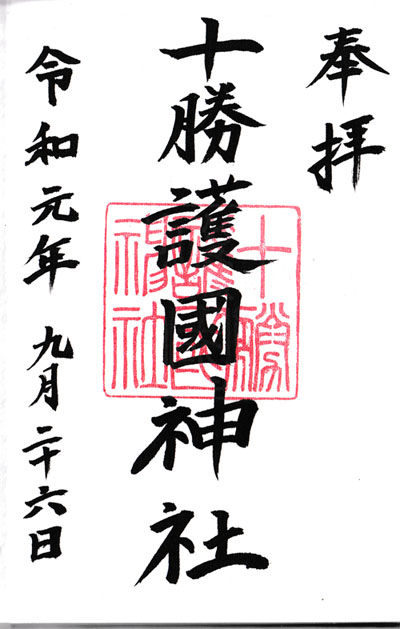 奉拝
十勝護國神社
十勝
護國
神社
令和元年 九月二十六日